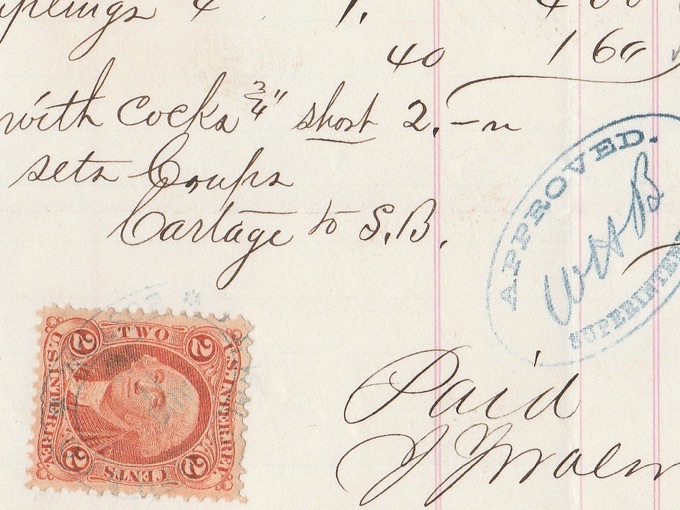 plings 4 1. 4 00
40 1 60
with Cocks 3/4" short 2.
sets Coups
Cartage to S.B.
APPROVED.
WHB
SUPERINTEN
TWO
2 2
U.S. INTER. REV. U.S. INTER. REV.
2 2
CENTS
Paid